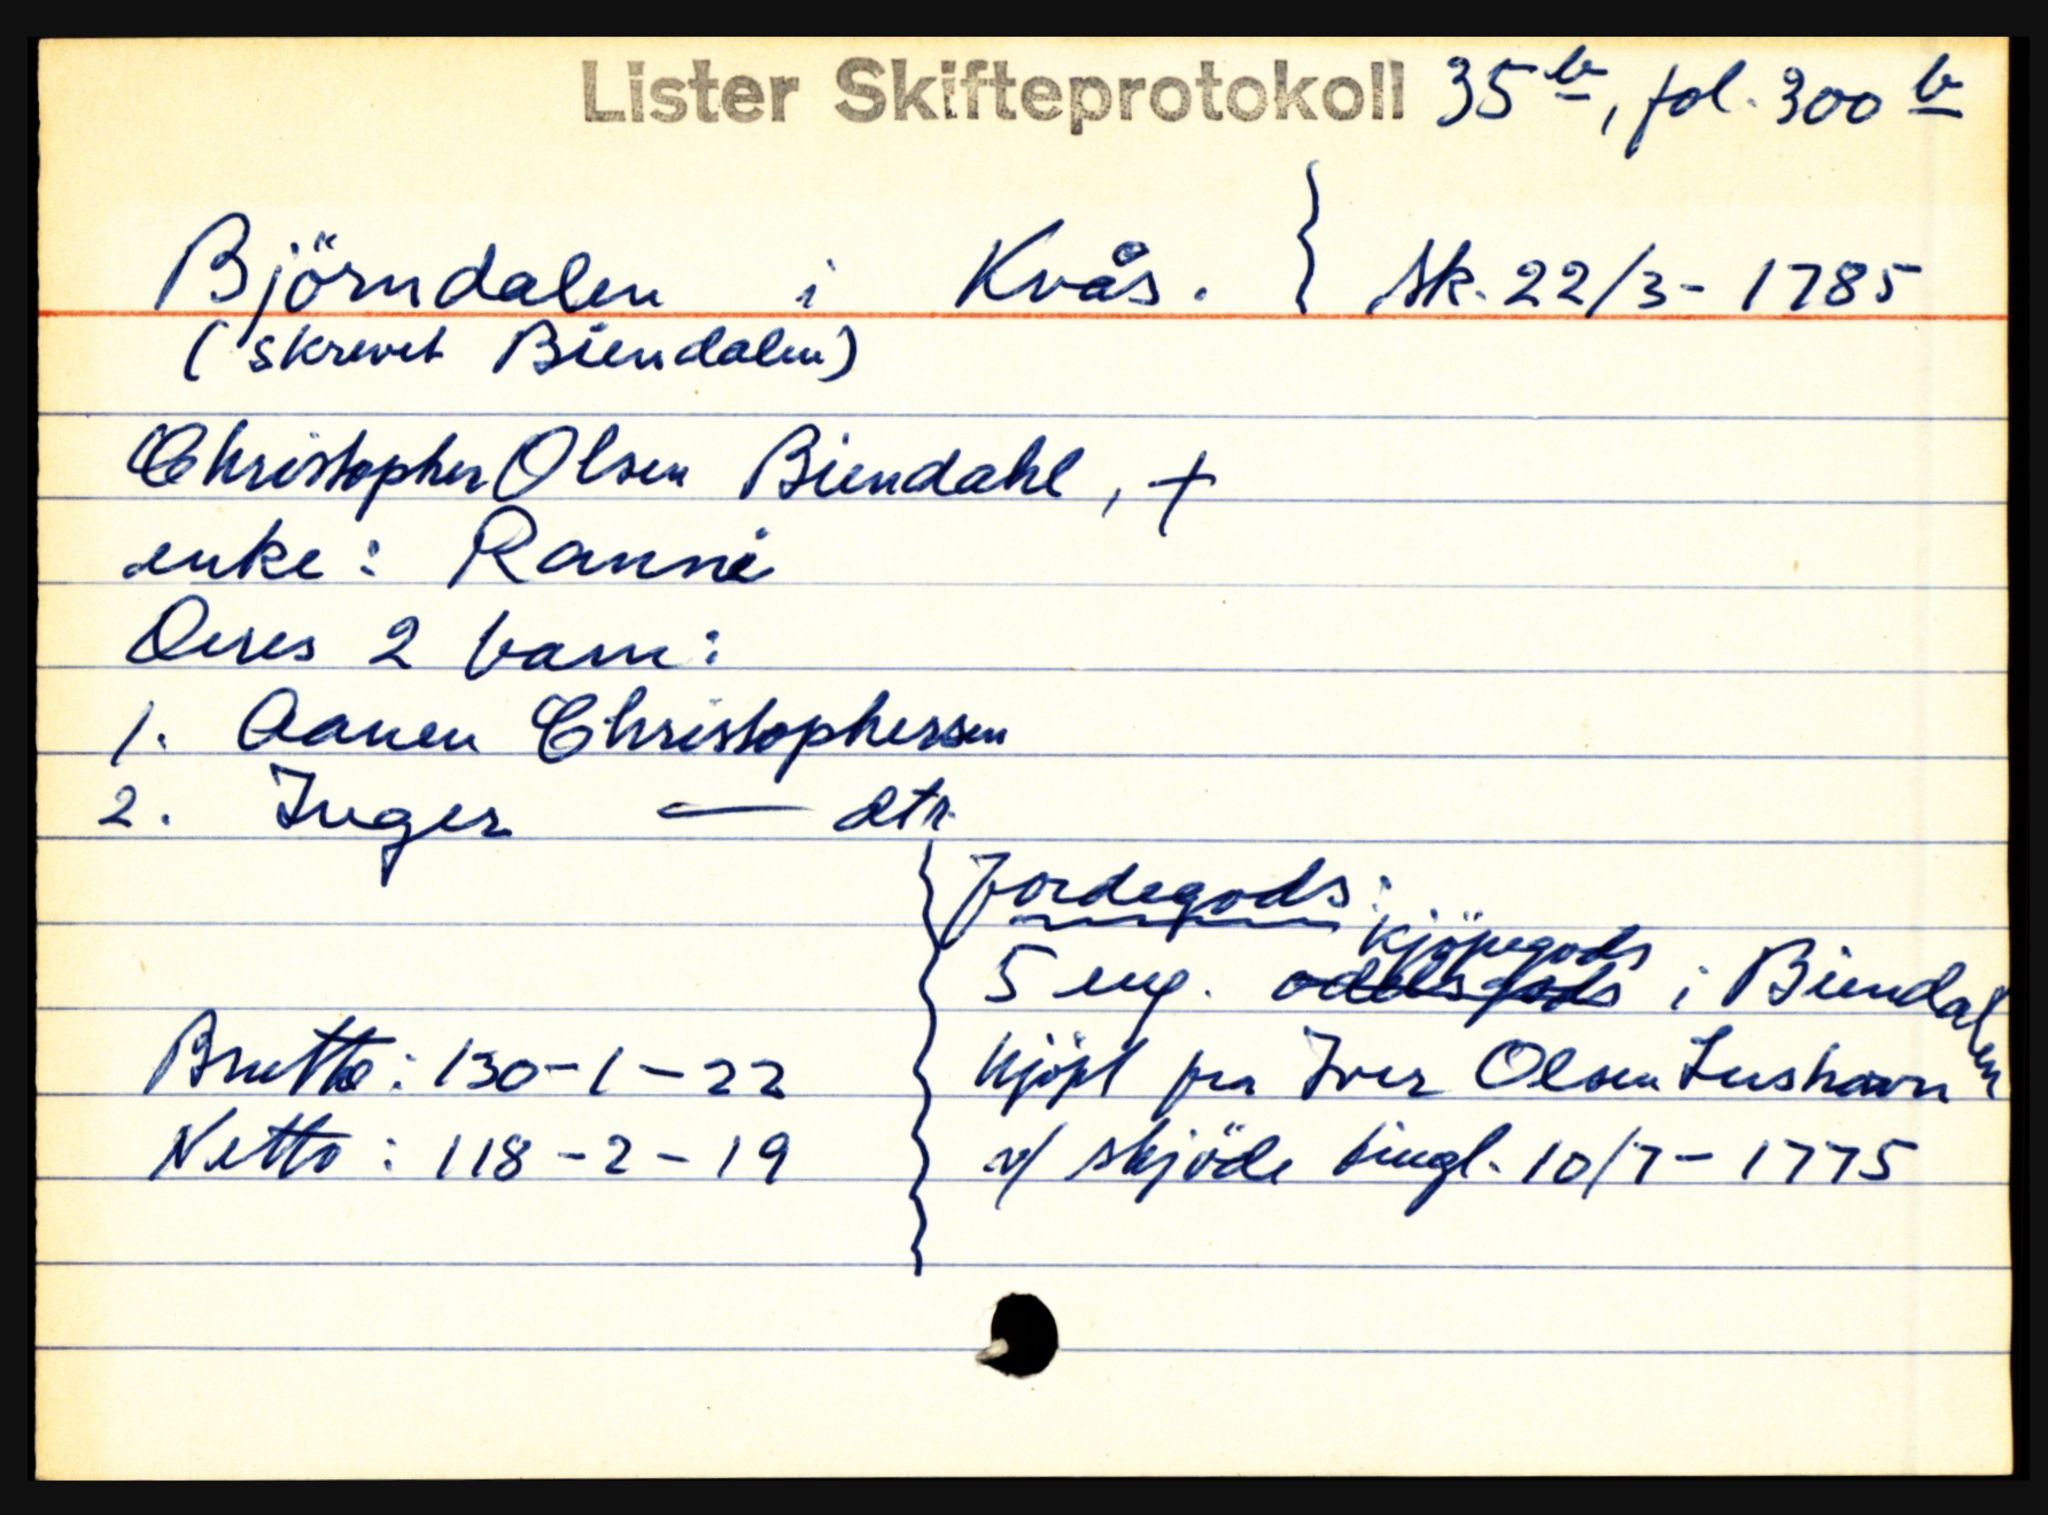 Lister Skifteprotokoll 35b, fol. 300 b
Björndalen i Kvås. } Sk. 22/3 - 1785
(skrevet Biendalen)
Christopher Olsen Biendahl, +
enke: Ranni
Deres 2 barn:
1. Aanen Christophersen
2. Inger — dtr.
Jordegods:
kjöpegods
5 eng. oddelsgods i Biendalen
kjöpt fra Iver Olsen Lushavn
v/ skjöde tingl. 10/7 - 1775
Brutto: 130-1-22
Netto: 118-2-19